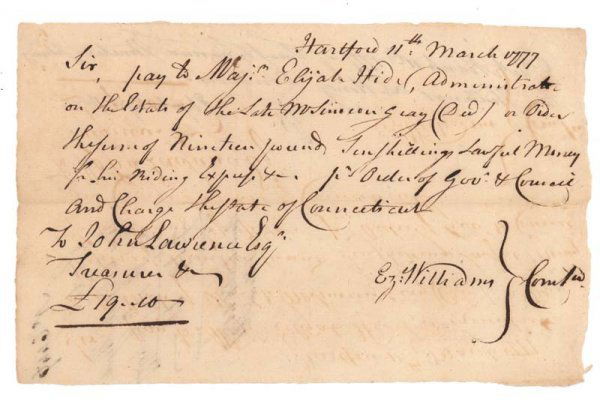 Hartford 11th. March 1777
Sir, pay to Majr. Elijah Hide, Administrator
on the Estate of the Late Mr Simeon Gray (Decd) or Order
the sum of Nineteen pound Ten shillings Lawful Money
for his Riding Express &c. pr. Order of Govr. & Council
and Charge the State of Connecticut
To John Lawrence Esqr.
Treasurer &c
Ez. Williams } Comtee.
£19..10